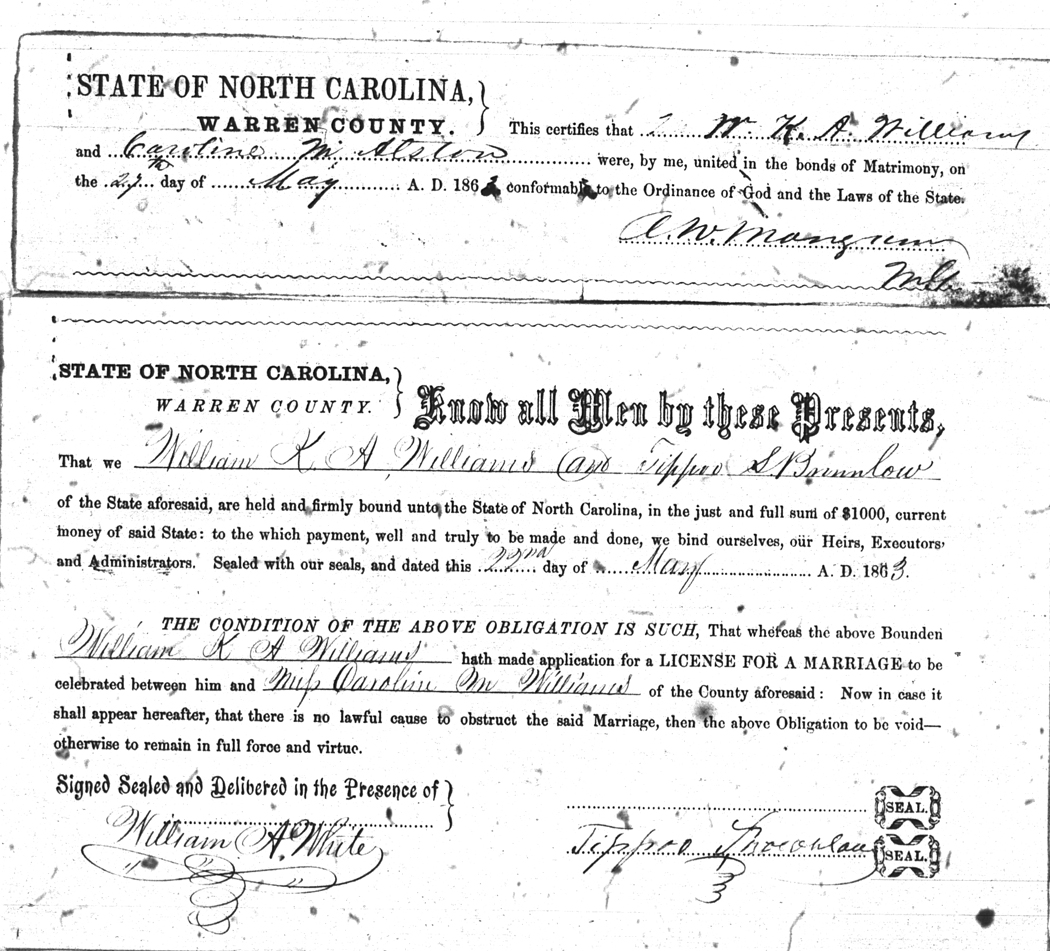 STATE OF NORTH CAROLINA,
WARREN COUNTY. This certifies that W. K. A. Williams
and Caroline M. Alston were, by me, united in the bonds of Matrimony, on
the 27th day of May A. D. 1863 conformable to the Ordinance of God and the Laws of the State.
A. W. Mangum
STATE OF NORTH CAROLINA,
WARREN COUNTY. Know all Men by these Presents,
That we William K A Williams and Tippoo S Brownlow
of the State aforesaid, are held and firmly bound unto the State of North Carolina, in the just and full sum of $1000, current
money of said State: to the which payment, well and truly to be made and done, we bind ourselves, our Heirs, Executors,
and Administrators. Sealed with our seals, and dated this 22nd day of May A. D. 1863.
THE CONDITION OF THE ABOVE OBLIGATION IS SUCH, That whereas the above Bounden
William K A Williams hath made application for a LICENSE FOR A MARRIAGE to be
celebrated between him and Miss Caroline M Williams of the County aforesaid: Now in case it
shall appear hereafter, that there is no lawful cause to obstruct the said Marriage, then the above Obligation to be void—
otherwise to remain in full force and virtue.
Signed Sealed and Delibered in the Presence of
SEAL.
William A. White
Tippoo Brownlow SEAL.